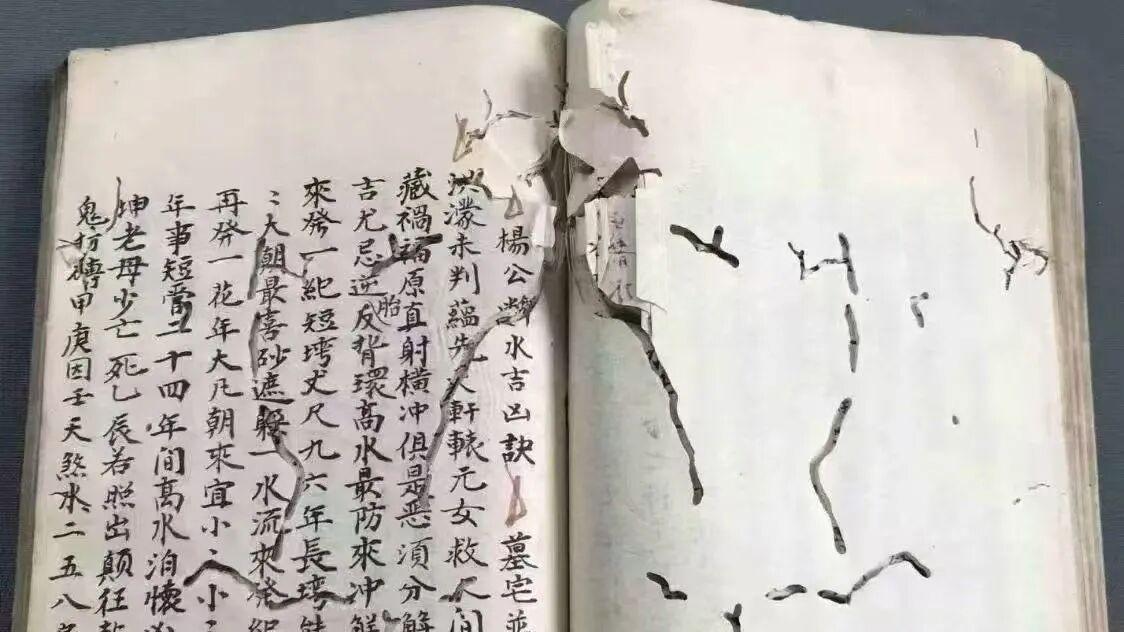 楊公水吉凶訣墓宅並
洪濛未判蘊先天軒轅元女救人間
藏禍福原直射橫冲俱是惡須分
吉尤忌逆反背環高水最防來冲
胎
來發一紀短塆丈尺九六年長塆
大朝最喜砂遮軀一水流來発
再発一花年大凡朝來宜小〻小
年事短當二十四年間高水泊懷
坤老母少亡死乙辰若照出顛狂
鬼甲庚因壬天煞水二五八